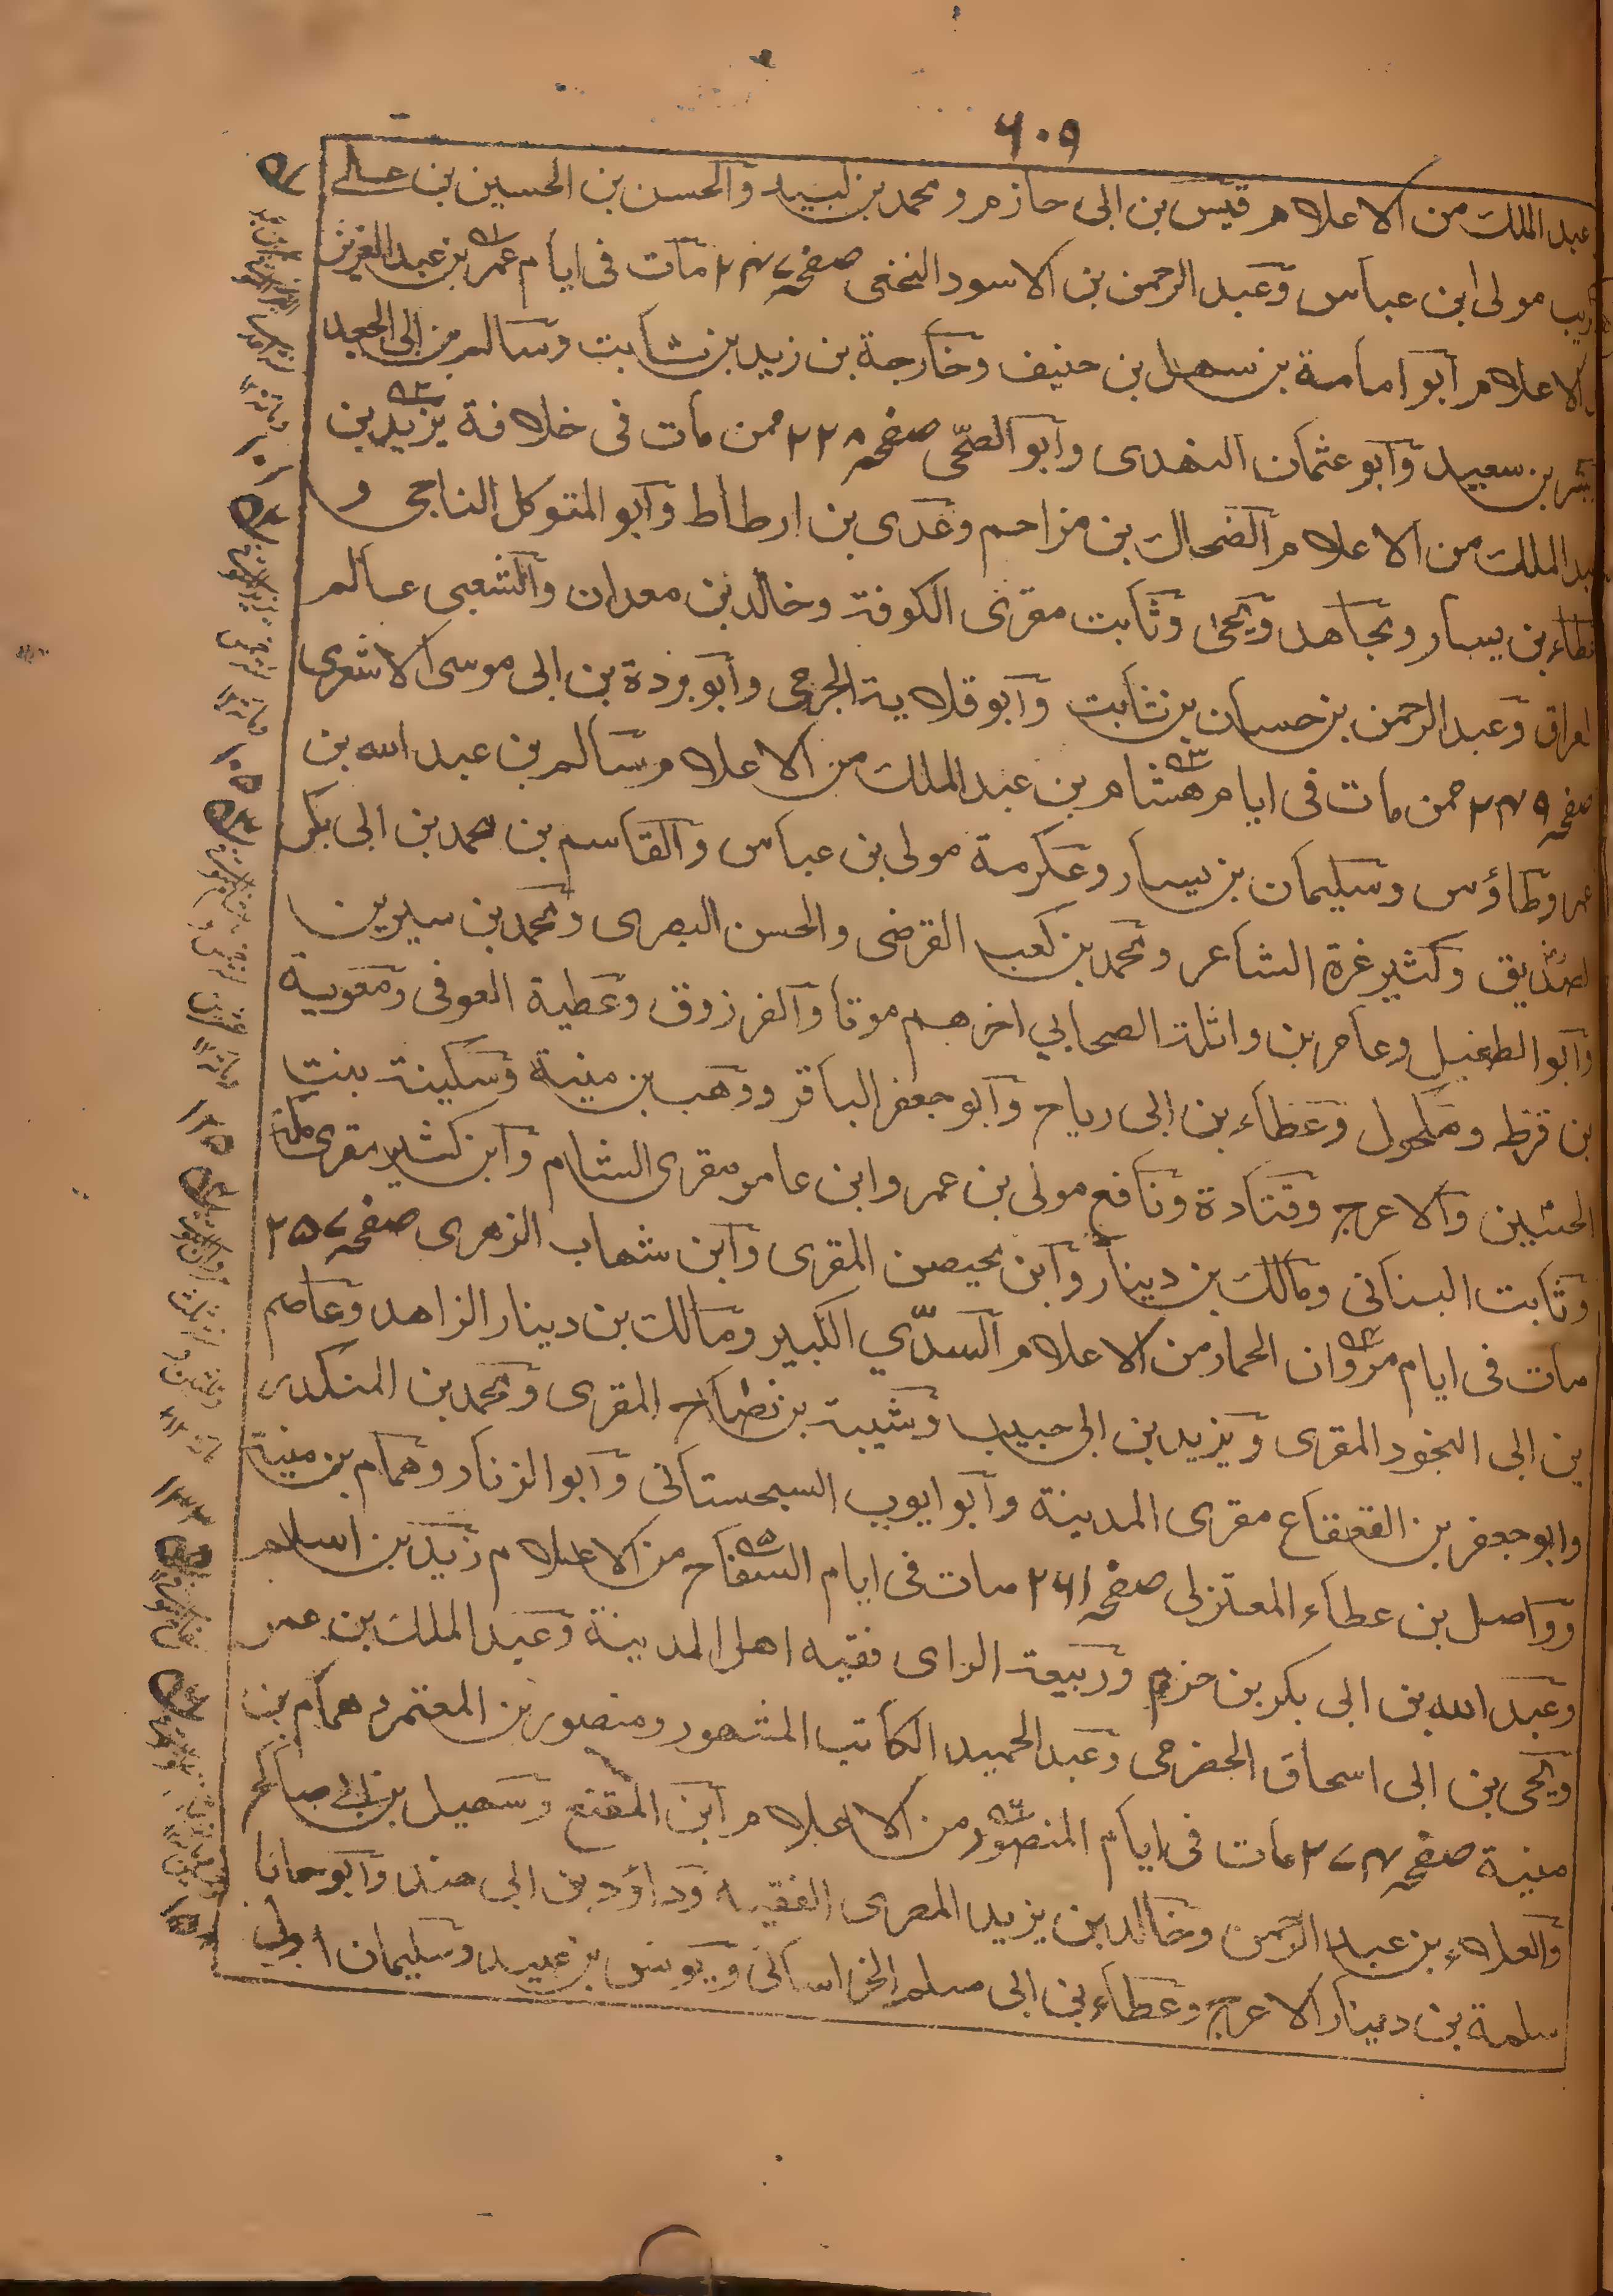 ۶۰۹
عبد الملك من الاعلام قيس بن ابى حازم ومحمد بن لبيد والحسن بن الحسين بن على
مولى ابن عباس وعبد الرحمن بن الاسود النخعى صفحه ۲۴۷ مات فى ايام عمر بن عبد العزيز
الاعلام ابو امامة بن سهل بن حنيف وخارجة بن زيد بن ثابت وسالم بن ابى الجعد
بن سعيد وابو عثمان النهدى وابو الضحّى صفحه ۲۲۸ ممن مات فى خلافة يزيد بن
عبد الملك من الاعلام الضحاك بن مزاحم وعدى بن ارطاط وابو المتوكل الناجى و
عطاء بن يسار ومجاهد ويحيى وثابت مقرى الكوفة وخالد بن معدان والشعبى عالم
العراق وعبد الرحمن بن حسان بن ثابت وابو قلابة الجرمى وابو بردة بن ابى موسى الاشعرى
صفحه ۲۴۹ ممن مات فى ايام هشام بن عبد الملك من الاعلام وسالم بن عبد الله بن
عمر وطاؤس وسليمان بن يسار وعكرمة مولى بن عباس والقاسم بن محمد بن ابى بكر
الصديق وكثير غرة الشاعر ومحمد بن كعب القرضى والحسن البصرى ومحمد بن سيرين
وابو الطفيل وعامر بن واثلة الصحابي اخرهم موتا والفرزوق وعطية العوفى ومعوية
بن قرط ومكحول وعطاء بن ابى رياح وابو جعفر الباقر ووهب بن منية وسكينة بنت
الحسين والاعرج وقتادة ونافع مولى بن عمر وابن عامر مقرى الشام وابن كثير مقرى مكة
وثابت البنانى ومالك بن دينار وابن محيصن المقرى وابن شهاب الزهرى صفحه ۲۵۷
مات فى ايام مروان الحمار من الاعلام السدّي الكبير ومالك بن دينار الزاهد وعاصم
بن ابى النجود المقرى ويزيد بن ابى حبيب وشيبة بن نصاح المقرى ومحمد بن المنكدر
وابو جعفر بن القعقاع مقرى المدينة وابو ايوب السجستانى وابو الزناد وهمام بن منية
وواصل بن عطاء المعتزلى صفحه ۲۶۱ مات فى ايام السفاح من الاعلام زيد بن اسلم
وعبد الله بن ابى بكر بن حزم وربيعة الراى فقيه اهل المدينة وعبد الملك بن عمر
ويحى بن ابى اسحاق الحضرمى وعبد الحميد الكاتب المشهور ومنصور بن المعتمر وهمام بن
منية صفحه ۲۷۴ مات فى ايام المنصور من الاعلام ابن المقنع وسهيل بن ابى صالح
والعلاء بن عبد الرحمن وخالد بن يزيد المصرى الفقيه وداؤد بن ابى هند وابو حاتا
سلمة بن دينار الاعرج وعطاء بن ابى مسلم الخراسانى ويونس بن عبيد وسليمان
۱۰۱
۱۰۵
۱۲۵
۱۳۲